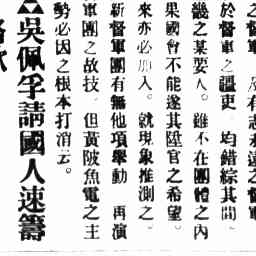 於督軍之疆吏．均錯綜其間．
幾之某要人．雖不在團體之內
果國會不能遂其陞官之希望．
來亦必加入．就現象推測之．
新督軍團有無他項舉動　再演
軍團之故技．但黃陂魚電之主
勢必因之根本打消云．
▲吳佩孚請國人速籌